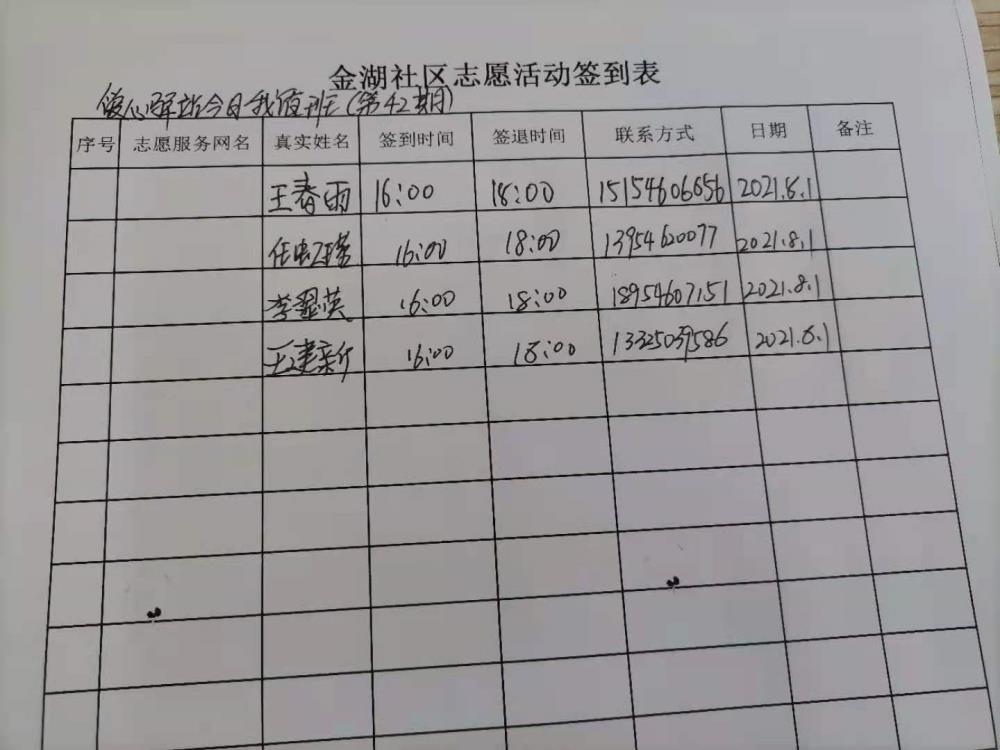 金湖社区志愿活动签到表
爱心驿站今日我值班(第42期)
序号 志愿服务网名 真实姓名 签到时间 签退时间 联系方式 日期 备注
王春雨 16:00 18:00 15154606656 2021.8.1
16:00 18:00 13954620077 2021.8.1
李翠英 16:00 18:00 18954607151 2021.8.1
王建新 16:00 18:00 13325039586 2021.8.1